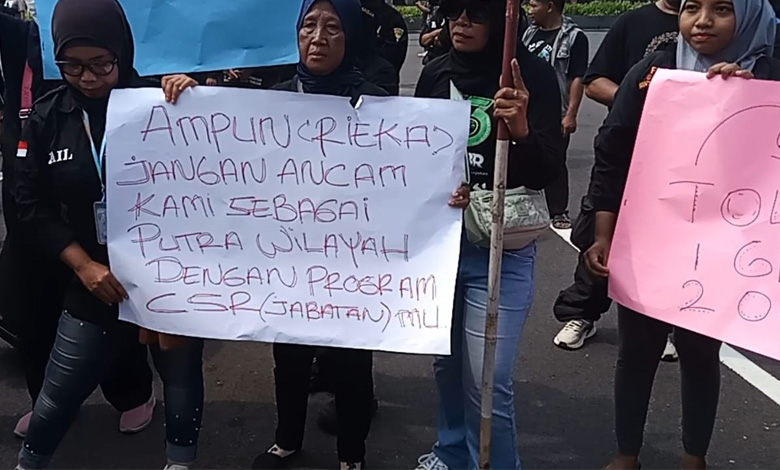 AMPUN (RIEKA)
JANGAN ANCAM
KAMI SEBAGAI
PUTRA WILAYAH
DENGAN PROGRAM
CSR (JABATAN) MU
TOL
1 G
20